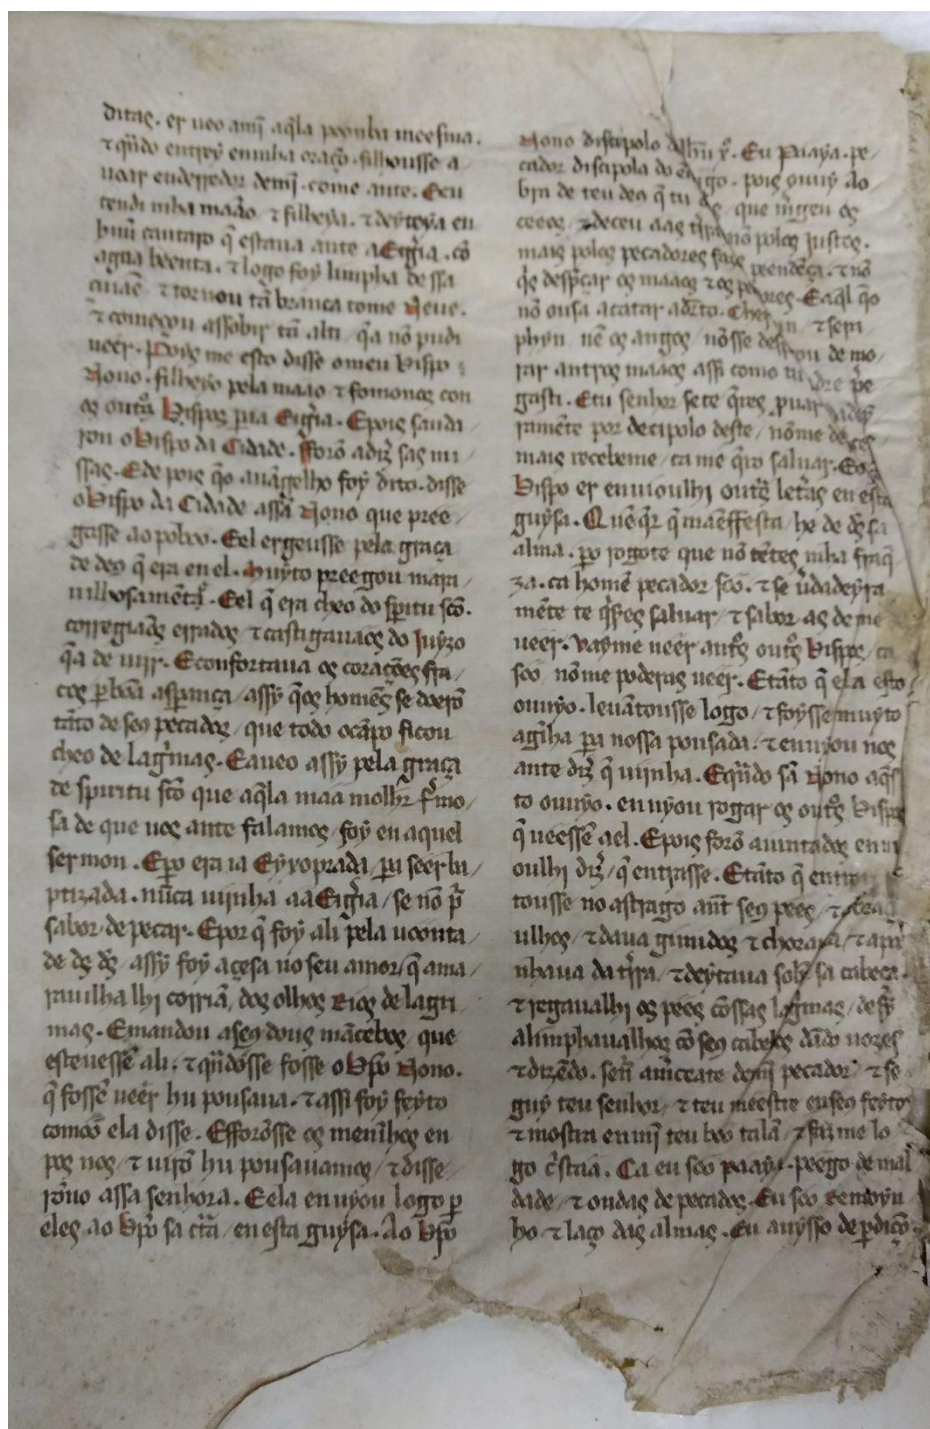 ditas. er ueo amĩ aq̃la poonba meesma.
⁊ q̃ndo entrey en mha oraçõ. filhousse a
uoar enderredor de mĩ. come ante. E eu
tendi mha maão ⁊ filheya. ⁊ deyteya en
huũ cantaro q̃ estaua ante a Eigr̃ia. cõ
agua beenta. ⁊ logo foy limpha de ssa
⁊ tornou tã branca come Neue.
⁊ começou assobir tã alti q̃a nõ pudi
ueer. Poys me esto disse o meu Bispo
Nono. filheyo pela maão ⁊ fomonos con
os outr̃s Bispos p̃ra Eigr̃ia. E pois saudi
rõn o Bispo da Cidade. fforõ a diz̃ sas mi
ssas. E de pois q̃o auãgelho foy dito. disse
o Bispo da Cidade assã Nono que pree
gasse ao poboo. E el ergeusse pela graça
de deus q̃ era en el. muyto preegou mara
uilhosamẽte. E el q̃ era cheo do sp̃ritu sc̃o.
corregiaos errados ⁊ castigauaos do Juyzo
q̃a de uĩr. E confortaua os corações fra
cos p̃ boã asperança / assy q̃os homẽs se doerõ
tãto de seus pecados / que todo o cãpo ficou
cheo de lagr̃imas. E aueo assy pela graça
de spiritu sc̃to que aq̃la maa molhr̃ fr̃mo /
sa de que uos ante falamos / foy en aquel
sermon. E p̃o era ia Eyxoprada p̃a seer ba /
ptizada. nũca uijnha aa Eigr̃ia / se nõ p̃
sabor / de pecar. E por q̃ foy ali pela uoonta /
de de ds̃ / assy foy açesa no seu amor / q̃ ama /
rauilha lhi corriã, dos olhos Rios de lagri
mas. E mandou a seus dous mãcebos que
esteuessẽ ali. ⁊ q̃ndosse fosse o Bp̃o Nono.
q̃ fossẽ ueer hu pousaua. ⁊ assi foy feyto
comoo ela disse. E fforõsse os menĩhos en
pos nos / ⁊ uirõ hu pousauamos / ⁊ disse
rõno assa senhora. E ela enuyou logo p̃
eles ao Bp̃o sa cr̃ta / en esta guysa. Ao Bp̃o
Nono discipolo de Ihũ x̃. Eu Paaya. pe /
cador discipola do ẽmigo. pois ouuy ao
bra de teu deus q̃ tu que m̃geu os
ceeos / ⁊ deceu aas t̃ras nõ polos justos.
mais polos pecadores fazer peendẽça. ⁊ nõ
q̃s desp̃çar os maaos ⁊ os peores. E aq̃l q̃o
nõ ousã a catar adr̃to. Cherubin / ⁊ sera
phyn nẽ os angos / nõsse despreçou de mo /
rar antr̃os maaos assi como tu p̃e
gasti. E tu senhor se te q̃res p̃uar
ramẽte por decipolo deste / nõme de
mais recebeme / ca me q̃ro saluar. E o
Bispo er enuioulhi outr̃s letr̃as en esta
guysa. Quẽ q̃r q̃ maẽffesta / he de ds̃ sa
alma. p̃o rogote que nõ tẽtes mha fraq̃
za. ca homẽ pecador sõo. ⁊ se u̇dadeyra
mẽte te q̃ses saluar / ⁊ sabor as de me
ueer. Vayme ueer antr̃os outr̃s Bispos / ca
sõo nõ me poderas ueer. E tãto q̃ ela esto /
ouuyo. leuãtousse logo / ⁊ foysse muyto
agĩha p̃a nossa pousada. ⁊ enuyou nos
ante diz̃ q̃ uijnha. E q̃ndo sã Nono aq̃s
to ouuyo. enuyou rogar os outr̃s Bispos
q̃ ueessẽ a el. E pois forõ aiuntados enui
oulhi diz̃ / q̃ entrasse. E tãto q̃ entrou
tousse no astrago ant̃ seus pees /
ulhos / ⁊ daua gimidos ⁊ choraua / ⁊ apa
nhaua da t̃ra / ⁊ deytaua sobr̃ sa cabeça.
⁊ regaualhi os pees cõ ssas lagr̃imas / desy
alimphaualhos cõ seus cabelos dãdo uozes
⁊ dizẽdo. senr̃ amerceate de mĩ pecador ⁊ se
guy teu senhor / ⁊ teu meestre en seus feytos
⁊ mostra en mĩ teu boo talã / ⁊ faz me lo
go cr̃istaã. Ca eu sõo paaya. peego de mal
dade / ⁊ ondas de pecados. Eu sõo Remoyn
ho ⁊ laço das almas. Eu auysso de p̃diçõ.